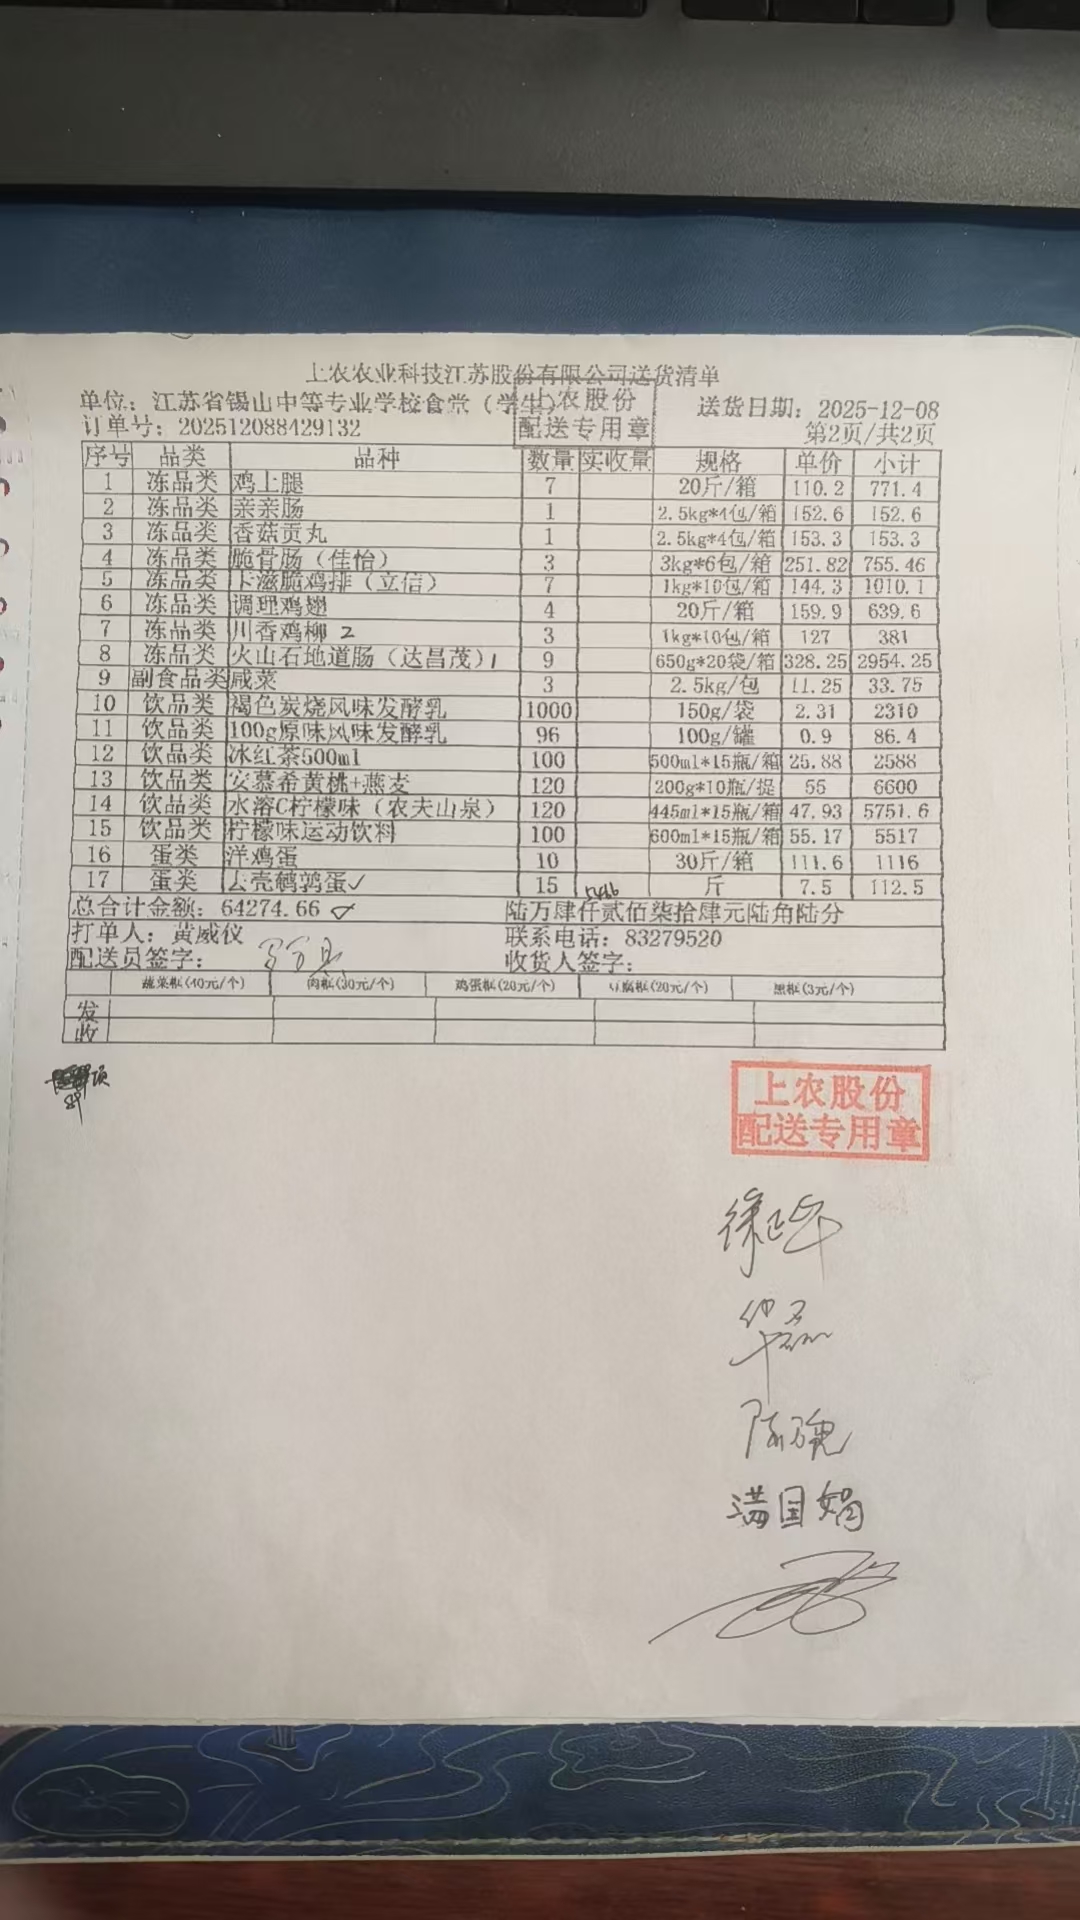 上农农业科技江苏股份有限公司送货清单
单位：江苏省锡山中等专业学校食堂（学生） 送货日期：2025-12-08
上农股份
配送专用章
订单号：202512088429132 第2页/共2页
序号 品类 品种 数量 实收量 规格 单价 小计
1 冻品类 鸡上腿 7 20斤/箱 110.2 771.4
2 冻品类 亲亲肠 1 2.5kg*4包/箱 152.6 152.6
3 冻品类 香菇贡丸 1 2.5kg*4包/箱 153.3 153.3
4 冻品类 脆骨肠（佳怡） 3 3kg*6包/箱 251.82 755.46
5 冻品类 卡滋脆鸡排（立信） 7 1kg*10包/箱 144.3 1010.1
6 冻品类 调理鸡翅 4 20斤/箱 159.9 639.6
7 冻品类 川香鸡柳 2 3 1kg*10包/箱 127 381
8 冻品类 火山石地道肠（达昌茂）1 9 650g*20袋/箱 328.25 2954.25
9 副食品类 咸菜 3 2.5kg/包 11.25 33.75
10 饮品类 褐色炭烧风味发酵乳 1000 150g/袋 2.31 2310
11 饮品类 100g原味风味发酵乳 96 100g/罐 0.9 86.4
12 饮品类 冰红茶500ml 100 500ml*15瓶/箱 25.88 2588
13 饮品类 安慕希黄桃+燕麦 120 200g*10瓶/提 55 6600
14 饮品类 水溶C柠檬味（农夫山泉） 120 445ml*15瓶/箱 47.93 5751.6
15 饮品类 柠檬味运动饮料 100 600ml*15瓶/箱 55.17 5517
16 蛋类 洋鸡蛋 10 30斤/箱 111.6 1116
17 蛋类 去壳鹌鹑蛋✓ 15 斤 7.5 112.5
总合计金额：64274.66 陆万肆仟贰佰柒拾肆元陆角陆分
打单人：黄威仪 联系电话：83279520
配送员签字： 收货人签字：
蔬菜框(40元/个) 肉框(30元/个) 鸡蛋框(20元/个) 豆腐框(20元/个) 黑框(3元/个)
发
收
上农股份
配送专用章
满国娟